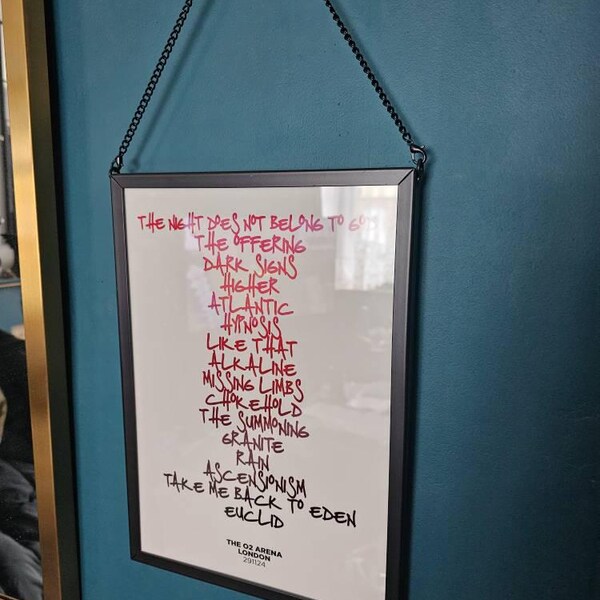 THE NIGHT DOES NOT BELONG TO
THE OFFERING
DARK SIGNS
HIGHER
ATLANTIC
HYPNOSIS
LIKE THAT
ALKALINE
MISSING LIMBS
CHOKEHOLD
THE SUMMONING
GRANITE
RAIN
ASCENSIONISM
TAKE ME BACK TO EDEN
EUCLID
THE O2 ARENA
LONDON
291124